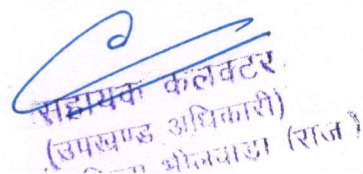 सहायक कलक्टर
(उपखण्ड अधिकारी)
जिला भीलवाड़ा (राज.)